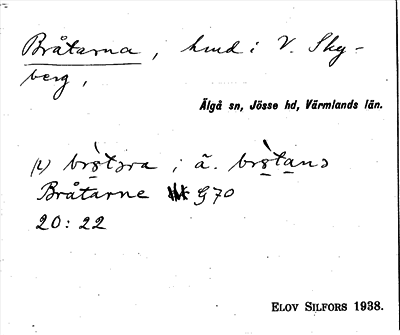 Bråtarna, hmd i V. Sky-
berg,
Älgå sn, Jösse hd, Värmlands län.
Bråtarne G70
20:22
ELOV SILFORS 1938.